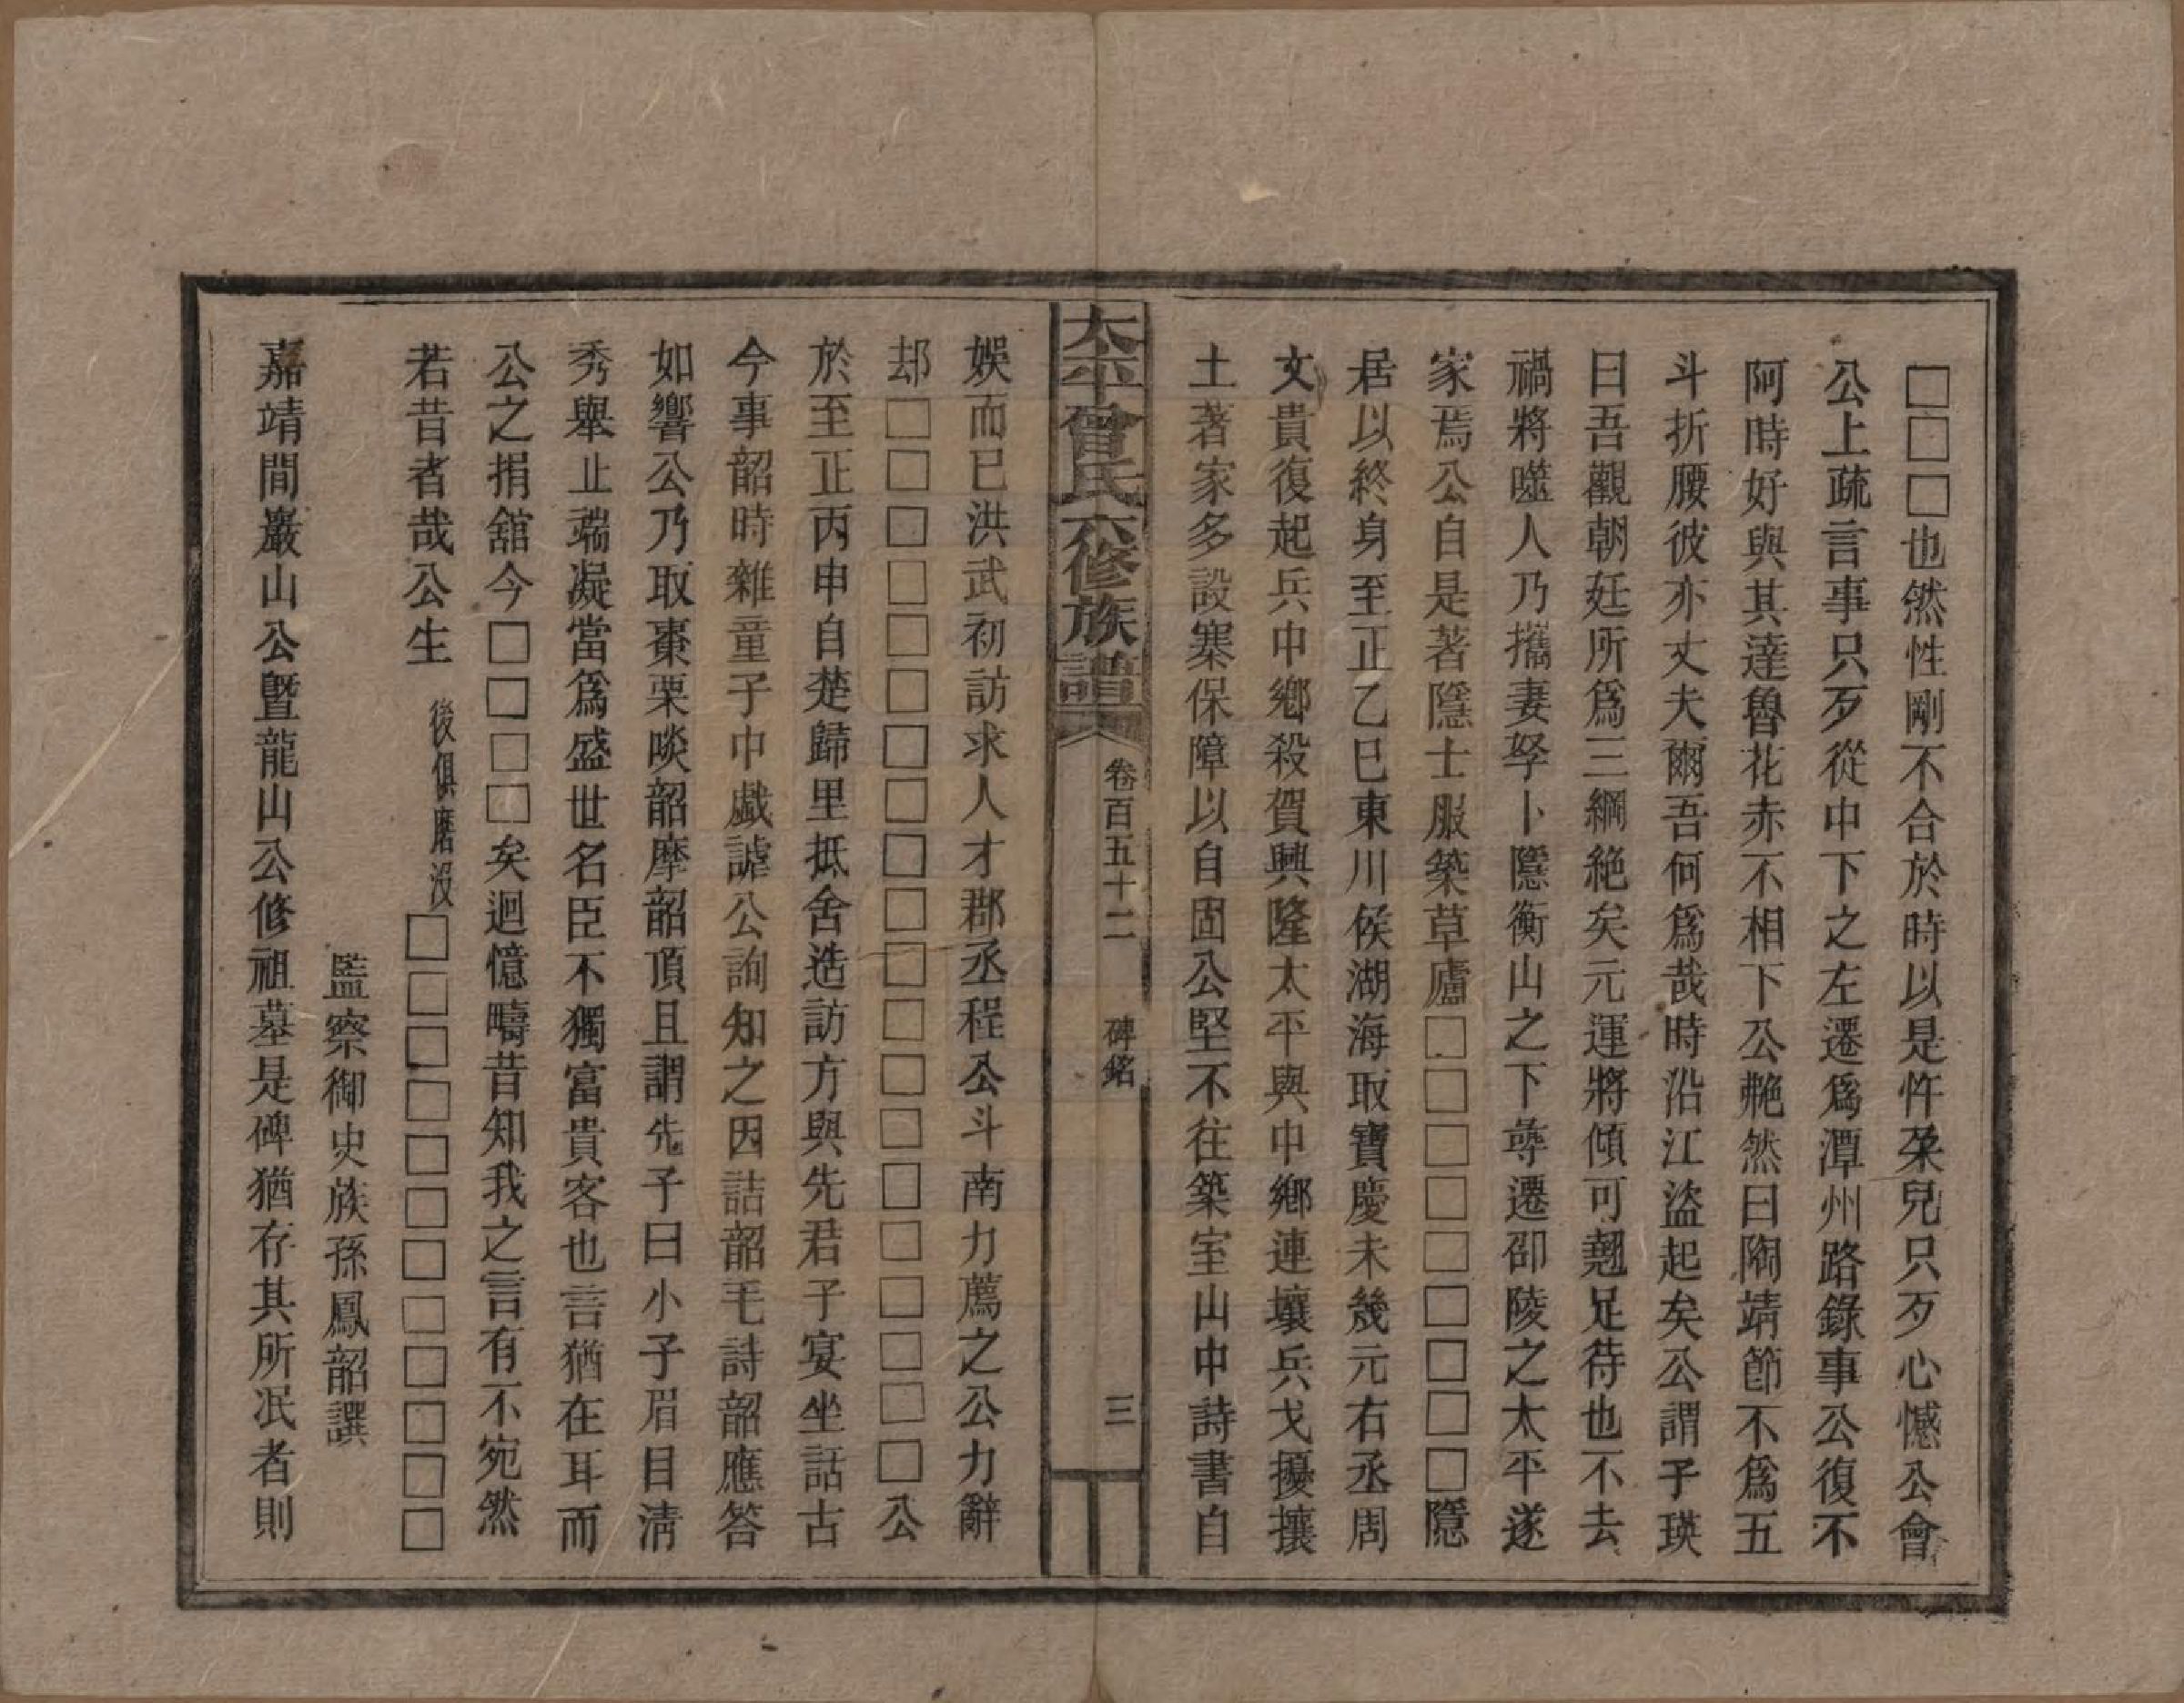 □□□也然性剛不合於時以是忤桑兒只歹心憾公會
公上疏言事只歹從中下之左遷爲潭州路錄事公復不
阿時好與其達魯花赤不相下公艴然曰陶靖節不爲五
斗折腰彼亦丈夫爾吾何爲哉時沿江盜起矣公謂子瑛
曰吾觀朝廷所爲三綱絶矣元運將傾可翹足待也不去
禍將噬人乃攜妻孥卜隱衡山之下尋遷邵陵之太平遂
家焉公自是著隱士服築草廬□□□□□□□□□隱
居以終身至正乙巳東川侯湖海取寶慶未幾元右丞周
文貴復起兵中鄉殺賀興隆太平與中鄉連壤兵戈擾攘
土著家多設寨保障以自固公堅不往築室山中詩書自
太平曾氏六修族譜 卷百五十二 碑銘 三
娛而已洪武初訪求人才郡丞程公斗南力薦之公力辭
却□□□□□□□□□□□□□□□□□□□□公
於至正丙申自楚歸里抵舍造訪方與先君子宴坐話古
今事韶時雜童子中戲謔公詢知之因詰韶毛詩韶應答
如響公乃取棗栗啖韶摩韶頂且謂先子曰小子眉目清
秀舉止端凝當爲盛世名臣不獨富貴客也言猶在耳而
公之捐舘今□□□□矣迴憶疇昔知我之言有不宛然
若昔者哉公生 後俱磨没 □□□□□□□□□□□□
監察御史族孫鳳韶譔
嘉靖間巖山公曁龍山公修祖墓是碑猶存其所泯者則